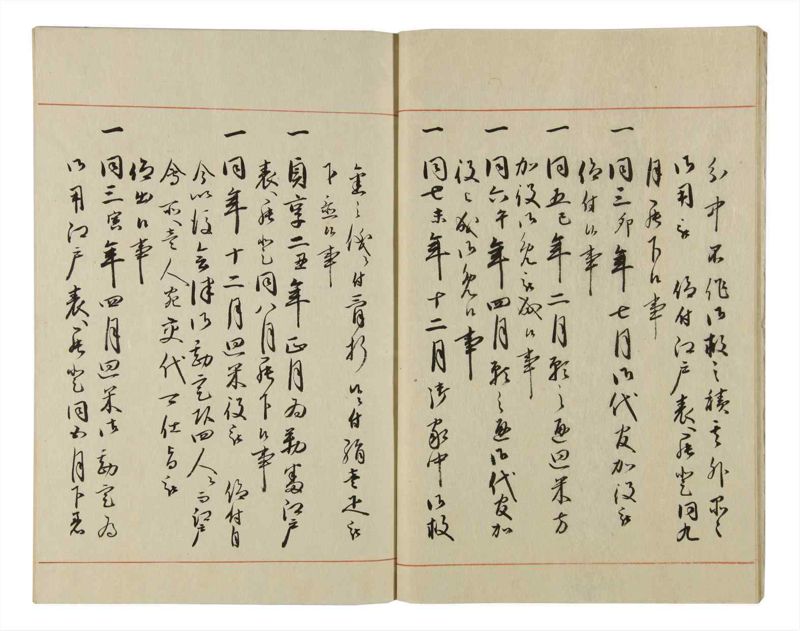 分中不作御救之積を以外
御用被 仰付江戸表へ罷登同九
月罷下候事
一同三卯年七月御代官加役被
仰付候事
一同五巳年二月願之通廻米方
加役御免被成候事
一同六午年四月願之通御代官加
役被成御免候事
一同七未年十二月御家中御救
金之儀付骨折候付絹壱疋被
下置候事
一貞享二丑年正月為勤番江戸
表へ罷登同八月罷下候事
一同年十二月廻米役被 仰付自
今以後会津御勘定頭四人之
壱人宛交代可仕旨被
仰出候事
一同三寅年四月廻米御勘定為
御用江戸表へ罷登同五月下着